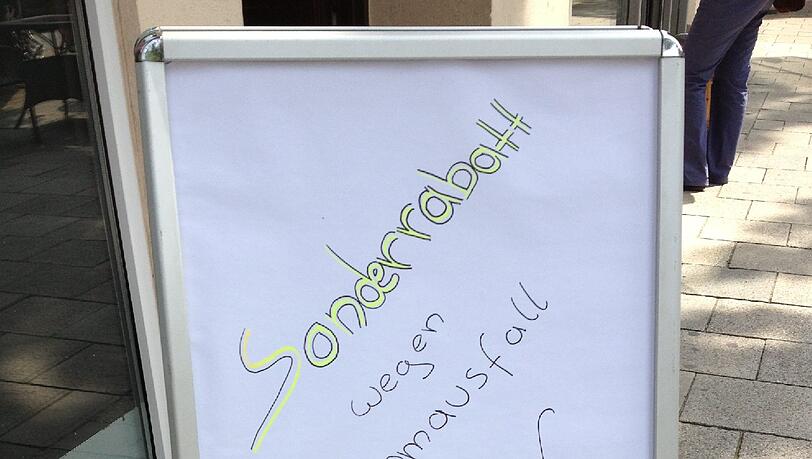 Sonderrabatt
wegen
omausfall